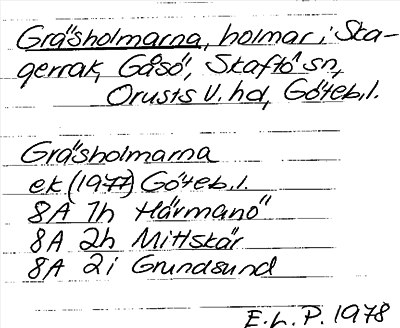 Gräsholmarna, holmar i Ska-
gerrak, Gåsö, Skaftö sn,
Orusts V. hd, Göteb. l.
Gräsholmarna
ek (1977) Göteb. l.
8A 1h Härmanö
8A 2h Mittskär
8A 2i Grundsund
E. L. P. 1978